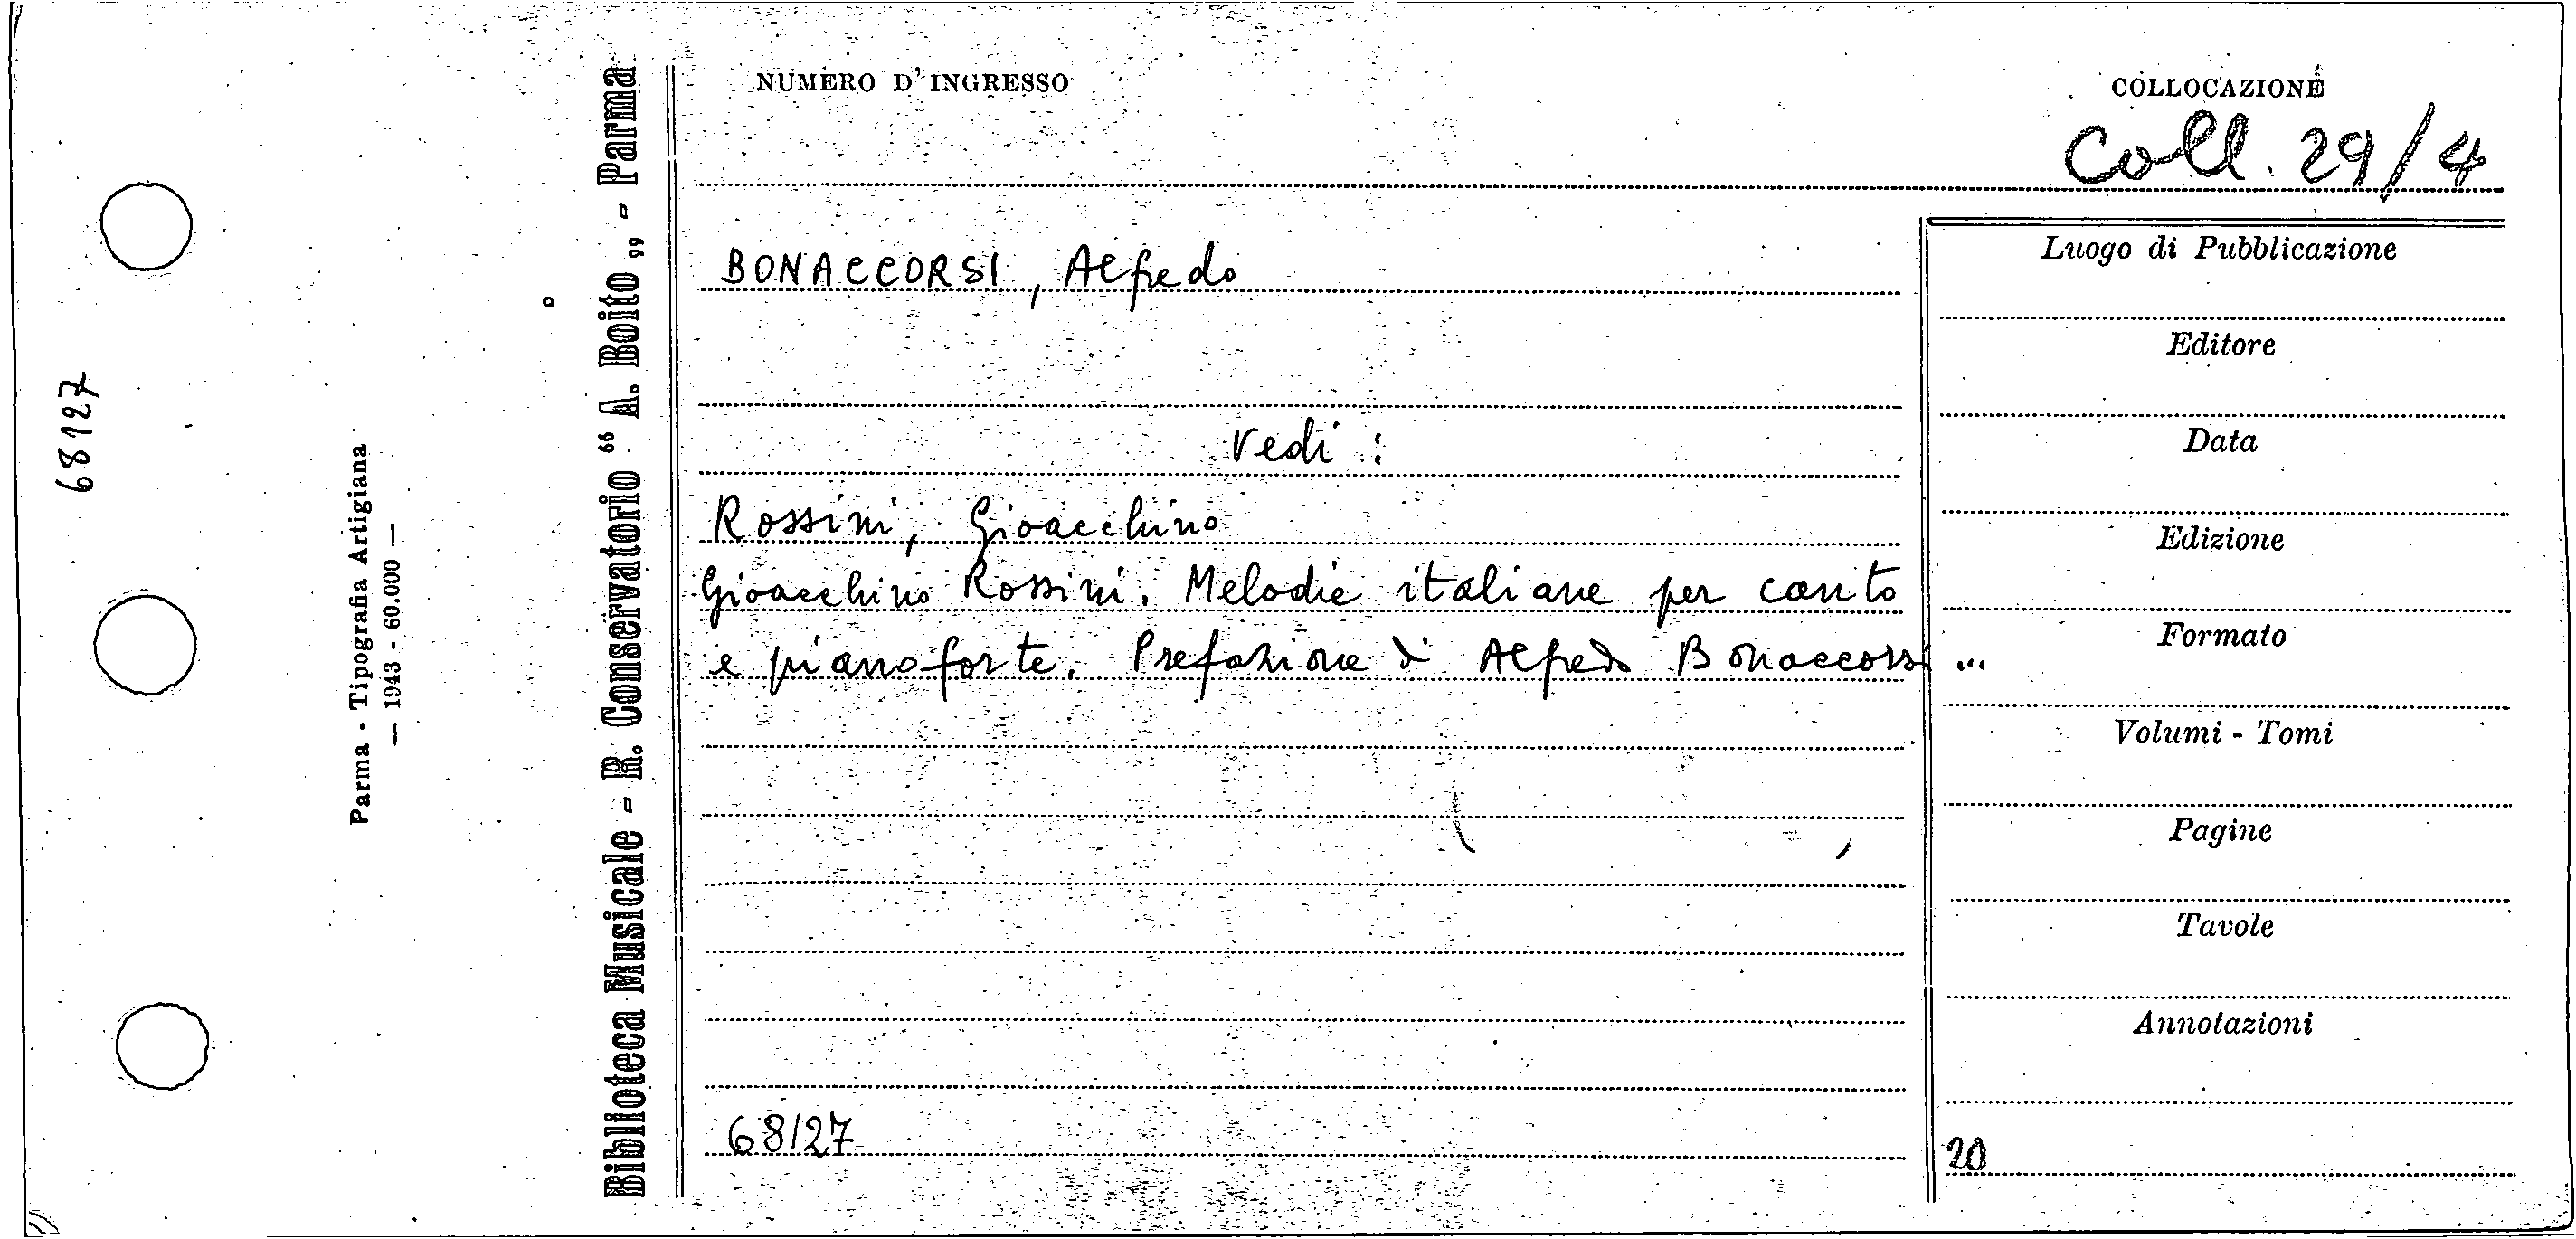 68127
Parma - Tipografia Artigiana
— 1943 - 60.000 —
Biblioteca Musicale - R. Conservatorio "A. Boito" - Parma
NUMERO D'INGRESSO
COLLOCAZIONE
Coll. 29/4
BONACCORSI, Alfredo
Vedi:
Rossini, Gioacchino
Gioacchino Rossini. Melodie italiane per canto
e pianoforte. Prefazione di Alfredo Bonaccorsi ...
68127
Luogo di Pubblicazione
Editore
Data
Edizione
Formato
Volumi - Tomi
Pagine
Tavole
Annotazioni
20